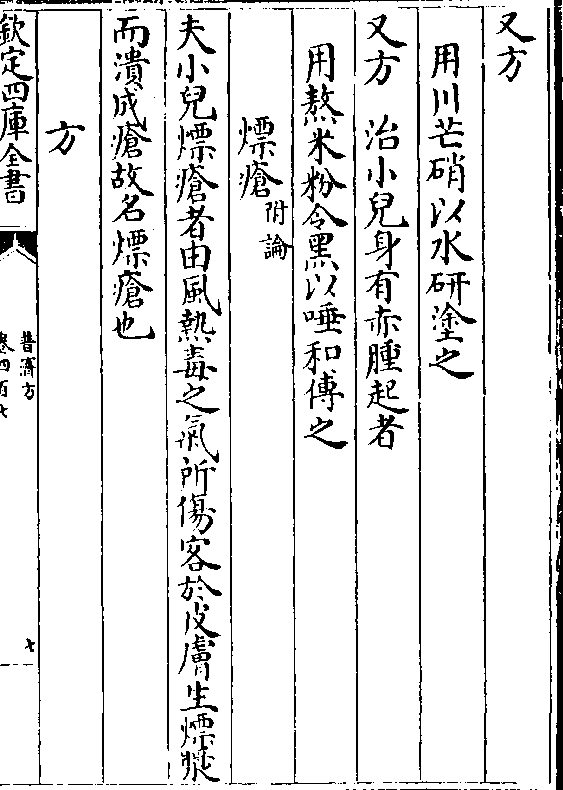 又方
用川芒硝以水研塗之
又方　治小兒身有赤腫起者
用熬米粉令黑以唾和傅之
熛瘡附論
夫小兒熛瘡者由風熱毒之氣所傷客於皮膚生熛漿
而潰成瘡故名熛瘡也
方
欽定四庫全書
普濟方
卷四百七
七